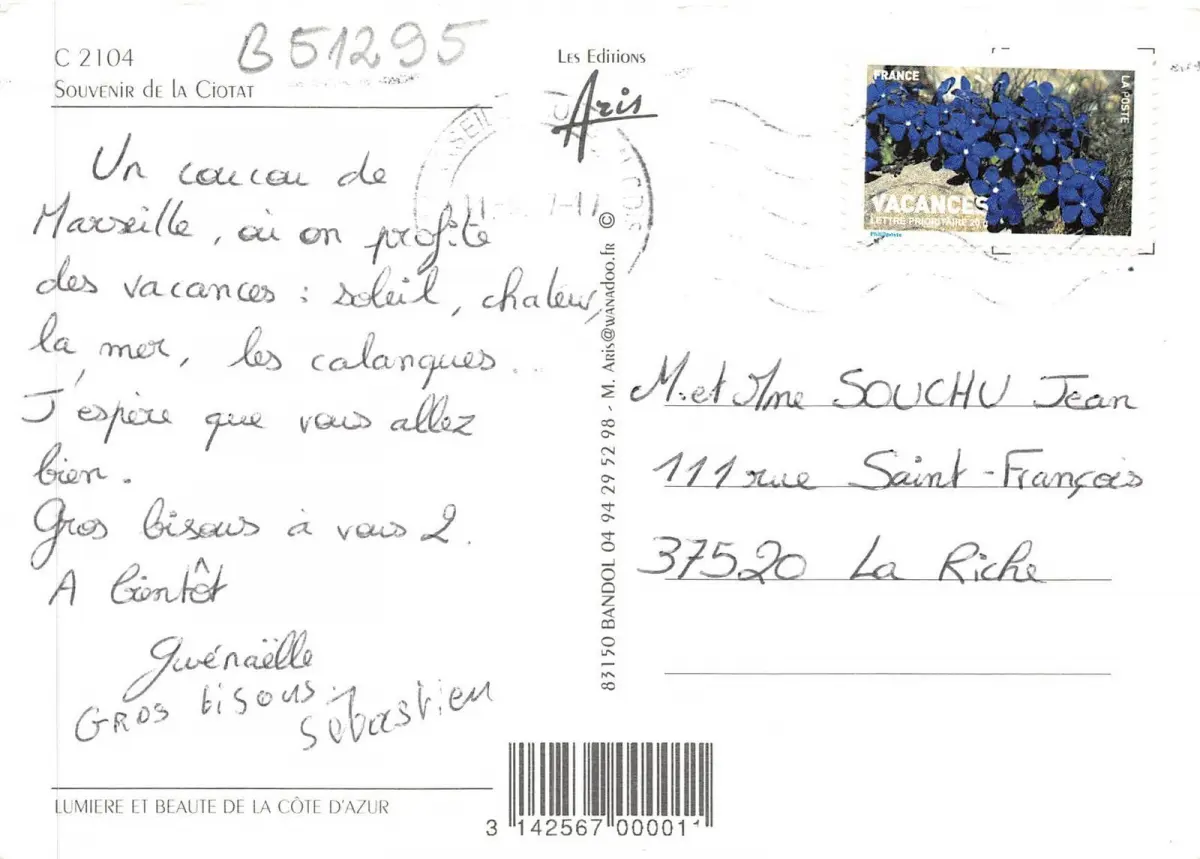 C 2104
B51295
SOUVENIR DE LA CIOTAT
Un coucou de
Marseille, où on profite
des vacances : soleil, chaleur,
la mer, les calanques...
J'espère que vous allez
bien.
Gros bisous à vous 2.
A bientôt
Gwénaëlle
GROS bisous
Sébastien
LUMIERE ET BEAUTE DE LA CÔTE D'AZUR
LES EDITIONS
Aris
83150 BANDOL 04 94 29 52 98 - M. ARIS@WANADOO.FR ©
3 142567 000011
FRANCE
LA POSTE
VACANCES
LETTRE PRIORITAIRE 20
Phil@poste
M. et Mme SOUCHU Jean
111 rue Saint-François
37520 La Riche